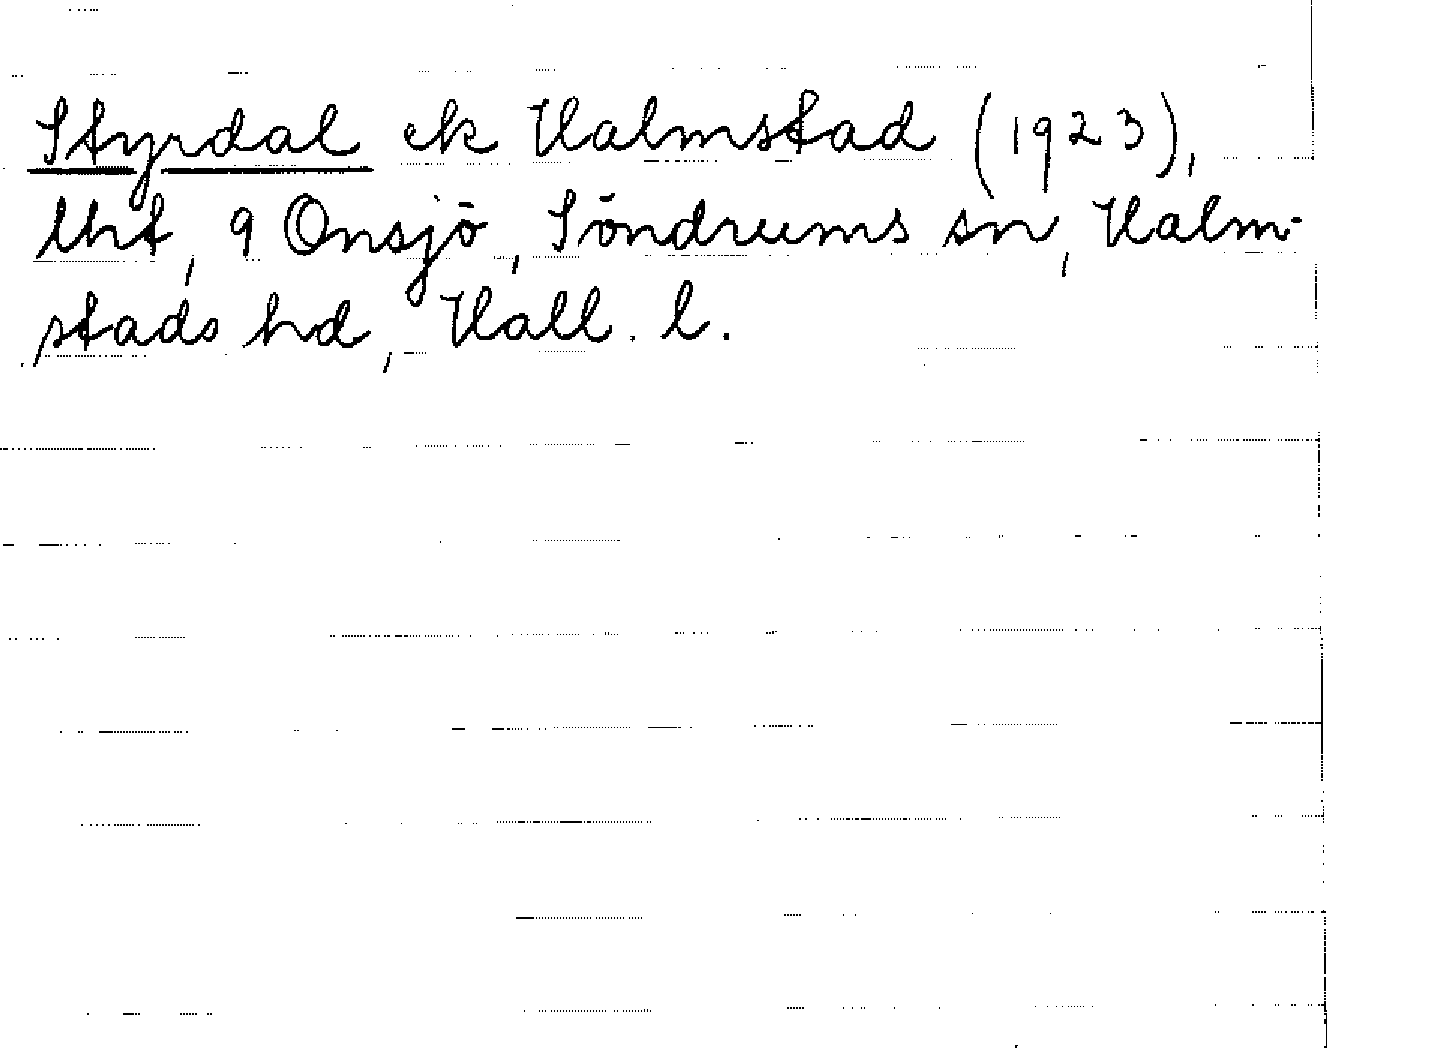 Styrdal ek Halmstad (1923),
lht, 9 Onsjö, Söndrums sn, Halm-
stads hd, Hall. l.